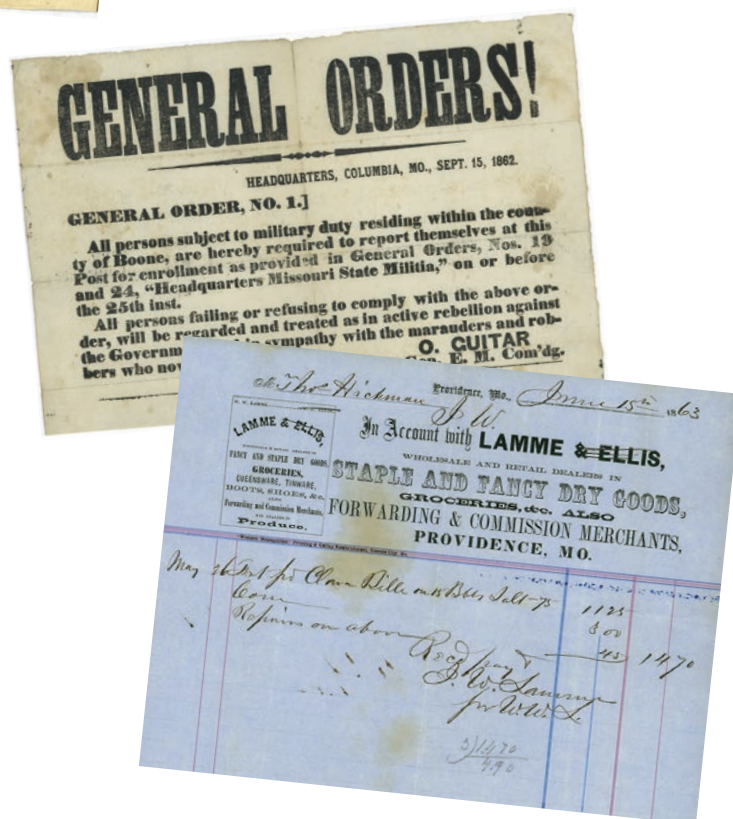 GENERAL ORDERS!
HEADQUARTERS, COLUMBIA, MO., SEPT. 15, 1862.
GENERAL ORDER, NO. 1.]
All persons subject to military duty residing within the coun-
ty of Boone, are hereby required to report themselves at this
Post for enrollment as provided in General Orders, Nos. 19
and 24, "Headquarters Missouri State Militia," on or before
the 25th inst.
All persons failing or refusing to comply with the above or-
der, will be regarded and treated as in active rebellion against
the Governm in sympathy with the marauders and rob-
bers who now
O. GUITAR
Gen. E. M. Com'dg.
Providence, Mo., June 15th 1863
Mr Thos Hickman
J. W.
In Account with LAMME & ELLIS,
WHOLESALE AND RETAIL DEALERS IN
STAPLE AND FANCY DRY GOODS,
GROCERIES, &c. ALSO
FORWARDING & COMMISSION MERCHANTS,
PROVIDENCE, MO.
LAMME & ELLIS,
WHOLESALE & RETAIL DEALERS IN
FANCY AND STAPLE DRY GOODS,
GROCERIES,
QUEENSWARE, TINWARE,
BOOTS, SHOES, &c.
ALSO
Forwarding and Commission Merchants,
Produce.
May 26 Frt pr Clara Bille on 15 Bbls Salt 75 11 25
3 00
on above 45 14 70
Recd pay
J. W. Lamme
for W. W. L.
3)14.70
4.90